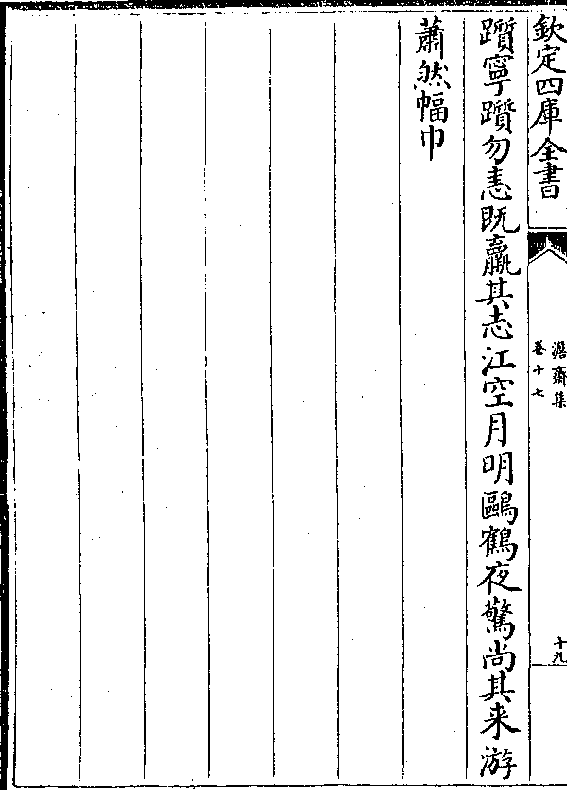 欽定四庫全書
澹齋集
卷十七
十九
躓寧躓勿恚既羸其志江空月明鷗鶴夜驚尚其来游
蕭然幅巾